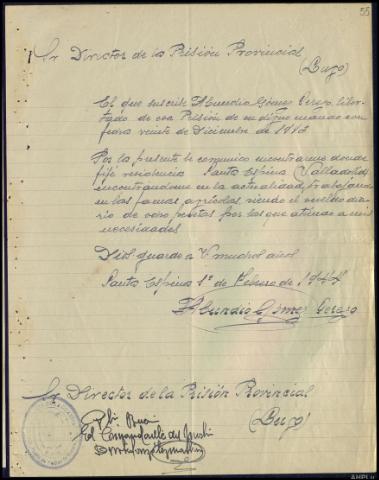 55
Sr Director de la Prisión Provincial
(Lugo)
El que suscribe Abundio Gómez Cerezo, liber-
tado de esa Prisión de su digno mando con
fecha veinte de Diciembre de 1943
Por la presente le comunico encontrarme donde
fijé residencia Santa Espina (Valladolid)
encontrandome en la actualidad, trabajando
en las faenas agrícolas, siendo el sueldo dia-
rio de ocho pesetas por las que atiendo a mis
necesidades
Dios guarde a V muchos años
Santa Espina 1º de Febrero de 1944
Abundio Gómez Cerezo
Sr Director de la Prisión Provincial
(Lugo)
El Comandante del
AHPLu